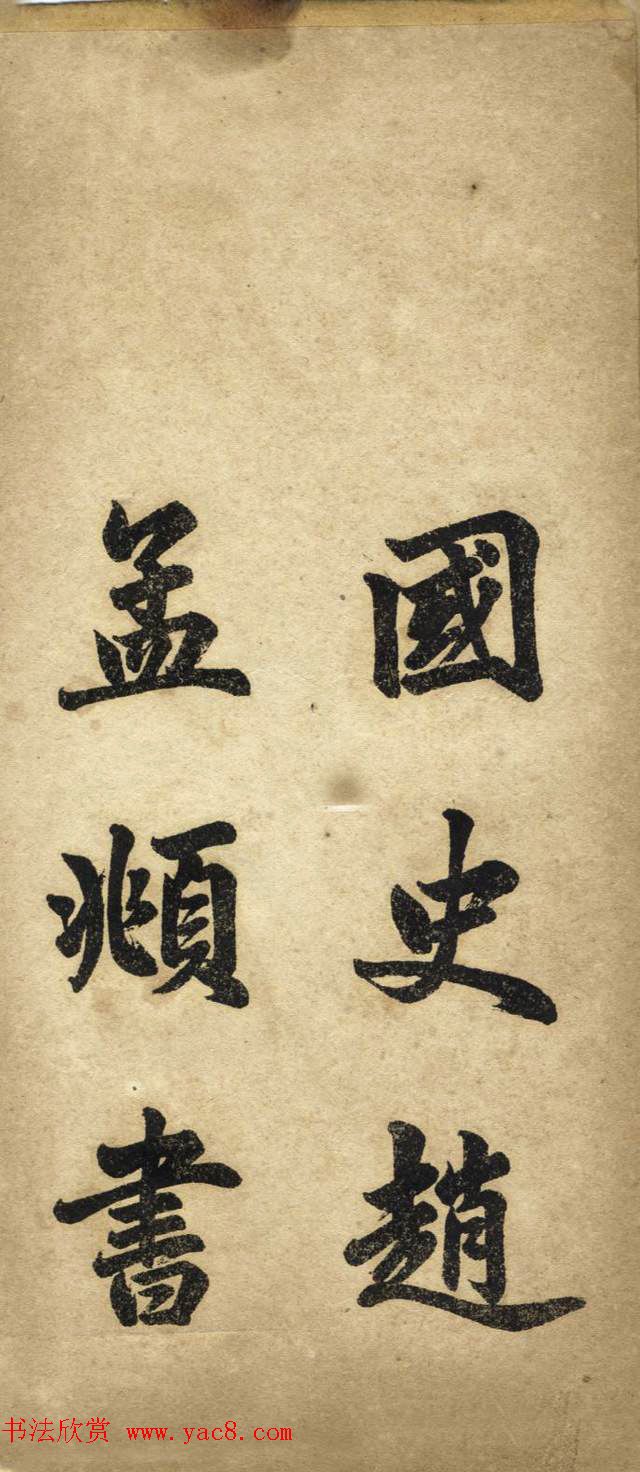 國史趙
孟頫書
书法欣赏 www.yac8.com